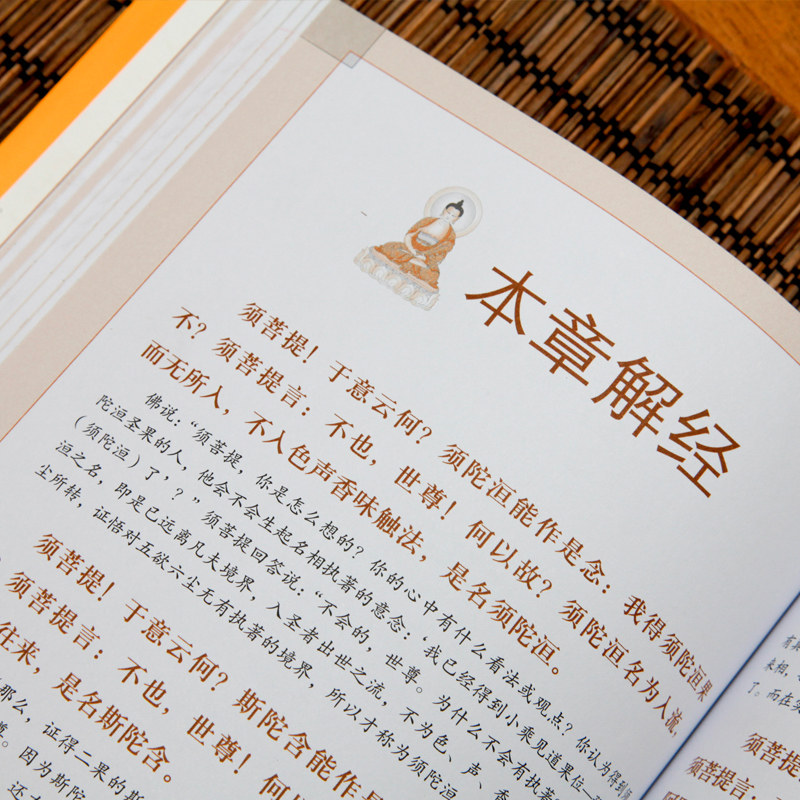 本章解经
须菩提！于意云何？须陀洹能作是念：我得须陀洹果
不？须菩提言：不也，世尊！何以故？须陀洹名为入流，
而无所入，不入色声香味触法，是名须陀洹。
佛说：“须菩提，你是怎么想的？你的心中有什么看法或观点？你认为得到
陀洹圣果的人，他会不会生起名相执著的意念：‘我已经得到小乘见道果位
（须陀洹）了，？”须菩提回答说：“不会的，世尊。为什么不会有执著
洹之名，即是已远离凡夫境界，入圣者出世之流，不为色、声、香
尘所转，证悟对五欲六尘无有执著的境界，所以才称为须陀洹
须菩提！于意云何？斯陀含能作是
须菩提言：不也，世尊！何以
往来，是名斯陀含。
那么，证得二果的斯
因为斯陀
来相，
了。而在
须菩提
须菩提言